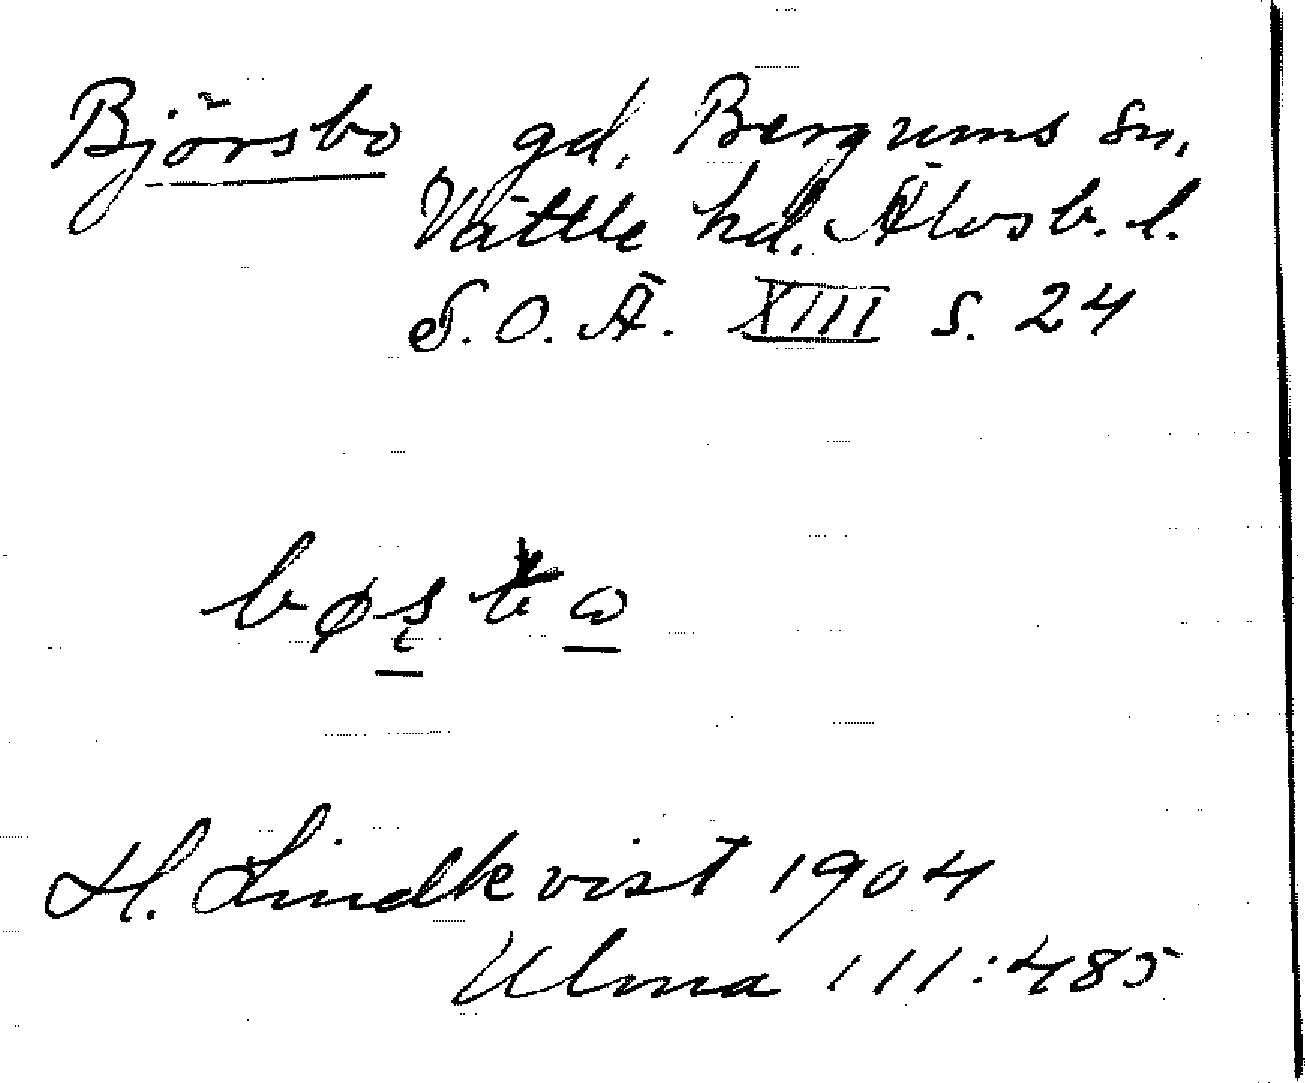 Björsbo gd. Bergums sn.
Vättle hd. Älvsb. l.
S.O.Ä. XIII s. 24
H. Lindkvist 1904
Ulma 111:485